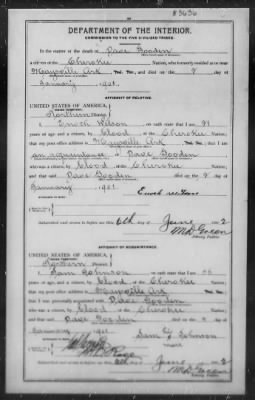 #3636
DEPARTMENT OF THE INTERIOR.
COMMISSION TO THE FIVE CIVILIZED TRIBES.
In the matter of the death of Dave Gooden
a citizen of the Cherokee Nation, who formerly resided at or near
Maysville Ark , Ind. Ter., and died on the 9 day of
January , 1901.
AFFIDAVIT OF RELATIVE.
UNITED STATES OF AMERICA,
INDIAN TERRITORY,
Northern District.
I, Enoch on oath state that I am
years of age and a citizen by blood of the Cherokee Nation;
that my postoffice address is Maysville Ark , Ind. Ter.; that I am
of Dave Gooden
who was a citizen, by blood of the Cherokee Nation,
and that said Dave Gooden died on the 9 day of
January , 1901.
Enoch
WITNESSES TO MARK:
Subscribed and sworn to before me this 6th day of June 2
Notary Public.
AFFIDAVIT OF ACQUAINTANCE.
UNITED STATES OF AMERICA,
INDIAN TERRITORY,
Northern District.
I, Sam Johnson , on oath state that I am
years of age, and a citizen by blood of the Cherokee Nation;
that my postoffice address is Maysville Ark , Ind. Ter.;
that I was personally acquainted with Dave Gooden
who was a citizen, by blood of the Cherokee Nation,
and that said Dave Gooden died on the 9 day of
1901
Sam Johnson
Subscribed and sworn to before me this 6th day of June 2
Notary Public.